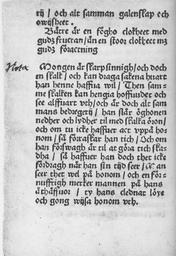 rij / och alt samman galenskap och
owijsheet.
Bätre är en fögho clokheet med
gudz fructan / än en stoor clokheet mz
gudz föractning
Nota
Mongen är skarpsinnigh / och doch
en skalk / och kan draga sakena huart
han henne haffua wil / Then sam=
me skalken kan hengia hoffuudet och
see alffuart vth / och är doch alt sam
mans bedregerij / han slår öghonen
nedher och lydher til med skalka öron /
och om tu icke haffuer act vppå hos
nom / så föraskar han tich / Och om
han förswagh är til at göra tich ska=
dha / så haffuer han doch thet icke
fördragh när han sin tijd seer / Man
seer thet wel på honom / och en för=
nufftigh mercker mannen på hans
åthäffuor / ty hans clednat löye
och gong wijsa honom vth.